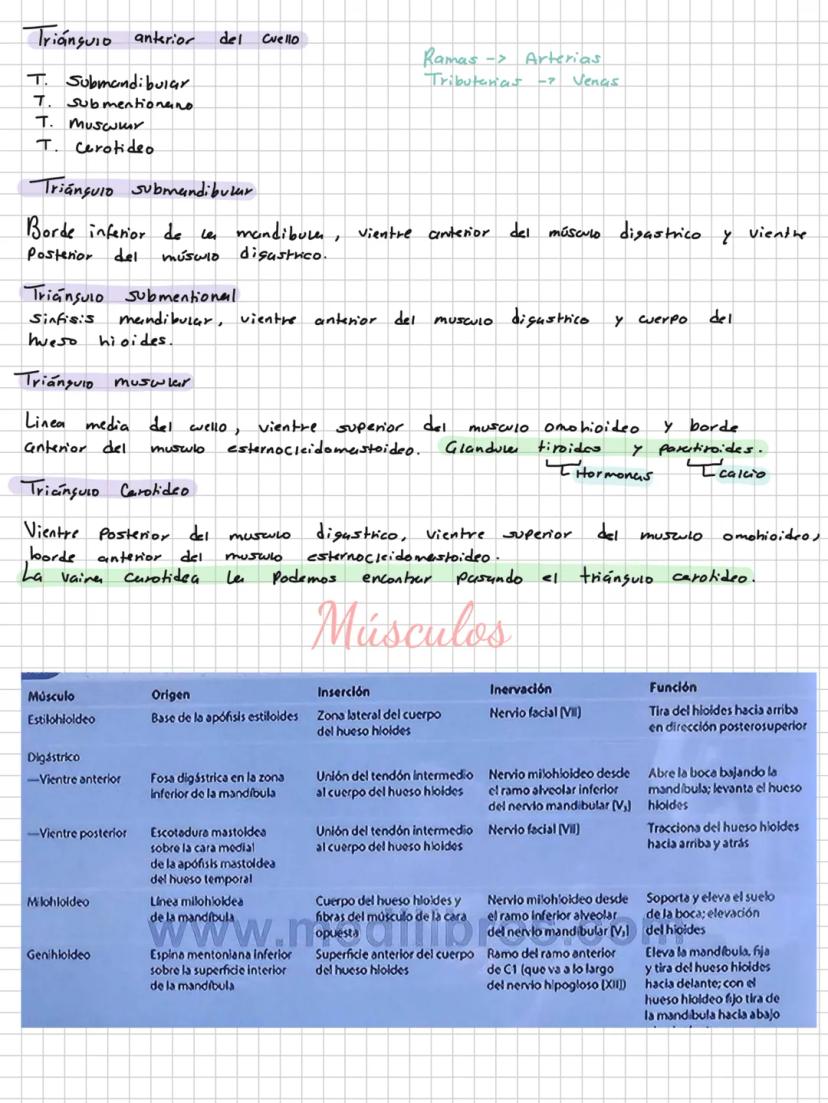 Triángulo anterior del cuello
Ramas -> Arterias
Tributarias -> Venas
T. Submandibular
T. submentoniano
T. muscular
T. carotideo
Triángulo submandibular
Borde inferior de la mandibula, vientre anterior del músculo digastrico y vientre
Posterior del músculo digastrico.
Triángulo submentional
Sinfisis mandibular, vientre anterior del musculo digastrico y cuerpo del
hueso hioides.
Triángulo muscular
Linea media del cuello, vientre superior del musculo omohioideo y borde
anterior del musculo esternocleidomastoideo. Glandula tiroides y paratiroides.
Hormonas
calcio
Triángulo Carotideo
Vientre Posterior del musculo digastrico, vientre superior del musculo omohioideo,
borde anterior del musculo esternocleidomastoideo.
La vaina Carotidea la Podemos encontrar pasando el triángulo carotideo.
Músculos
Músculo Origen Inserción Inervación Función
Estilohioideo Base de la apófisis estiloides Zona lateral del cuerpo Nervio facial [VII] Tira del hioides hacia arriba
del hueso hioides en dirección posterosuperior
Digástrico
—Vientre anterior Fosa digástrica en la zona Unión del tendón intermedio Nervio milohioideo desde Abre la boca bajando la
inferior de la mandíbula al cuerpo del hueso hioides el ramo alveolar inferior mandíbula; levanta el hueso
del nervio mandibular [V₃] hioides
—Vientre posterior Escotadura mastoidea Unión del tendón intermedio Nervio facial [VII] Tracciona del hueso hioides
sobre la cara medial al cuerpo del hueso hioides hacia arriba y atrás
de la apófisis mastoidea
del hueso temporal
Milohioideo Línea milohioidea Cuerpo del hueso hioides y Nervio milohioideo desde Soporta y eleva el suelo
de la mandíbula fibras del músculo de la cara el ramo inferior alveolar de la boca; elevación
opuesta del nervio mandibular [V₃] del hioides
www.medilibros.com
Genihioideo Espina mentoniana inferior Superficie anterior del cuerpo Ramo del ramo anterior Eleva la mandíbula, fija
sobre la superficie interior del hueso hioides de C1 (que va a lo largo y tira del hueso hioides
de la mandíbula del nervio hipogloso [XII]) hacia delante; con el
hueso hioideo fijo tira de
la mandíbula hacia abajo